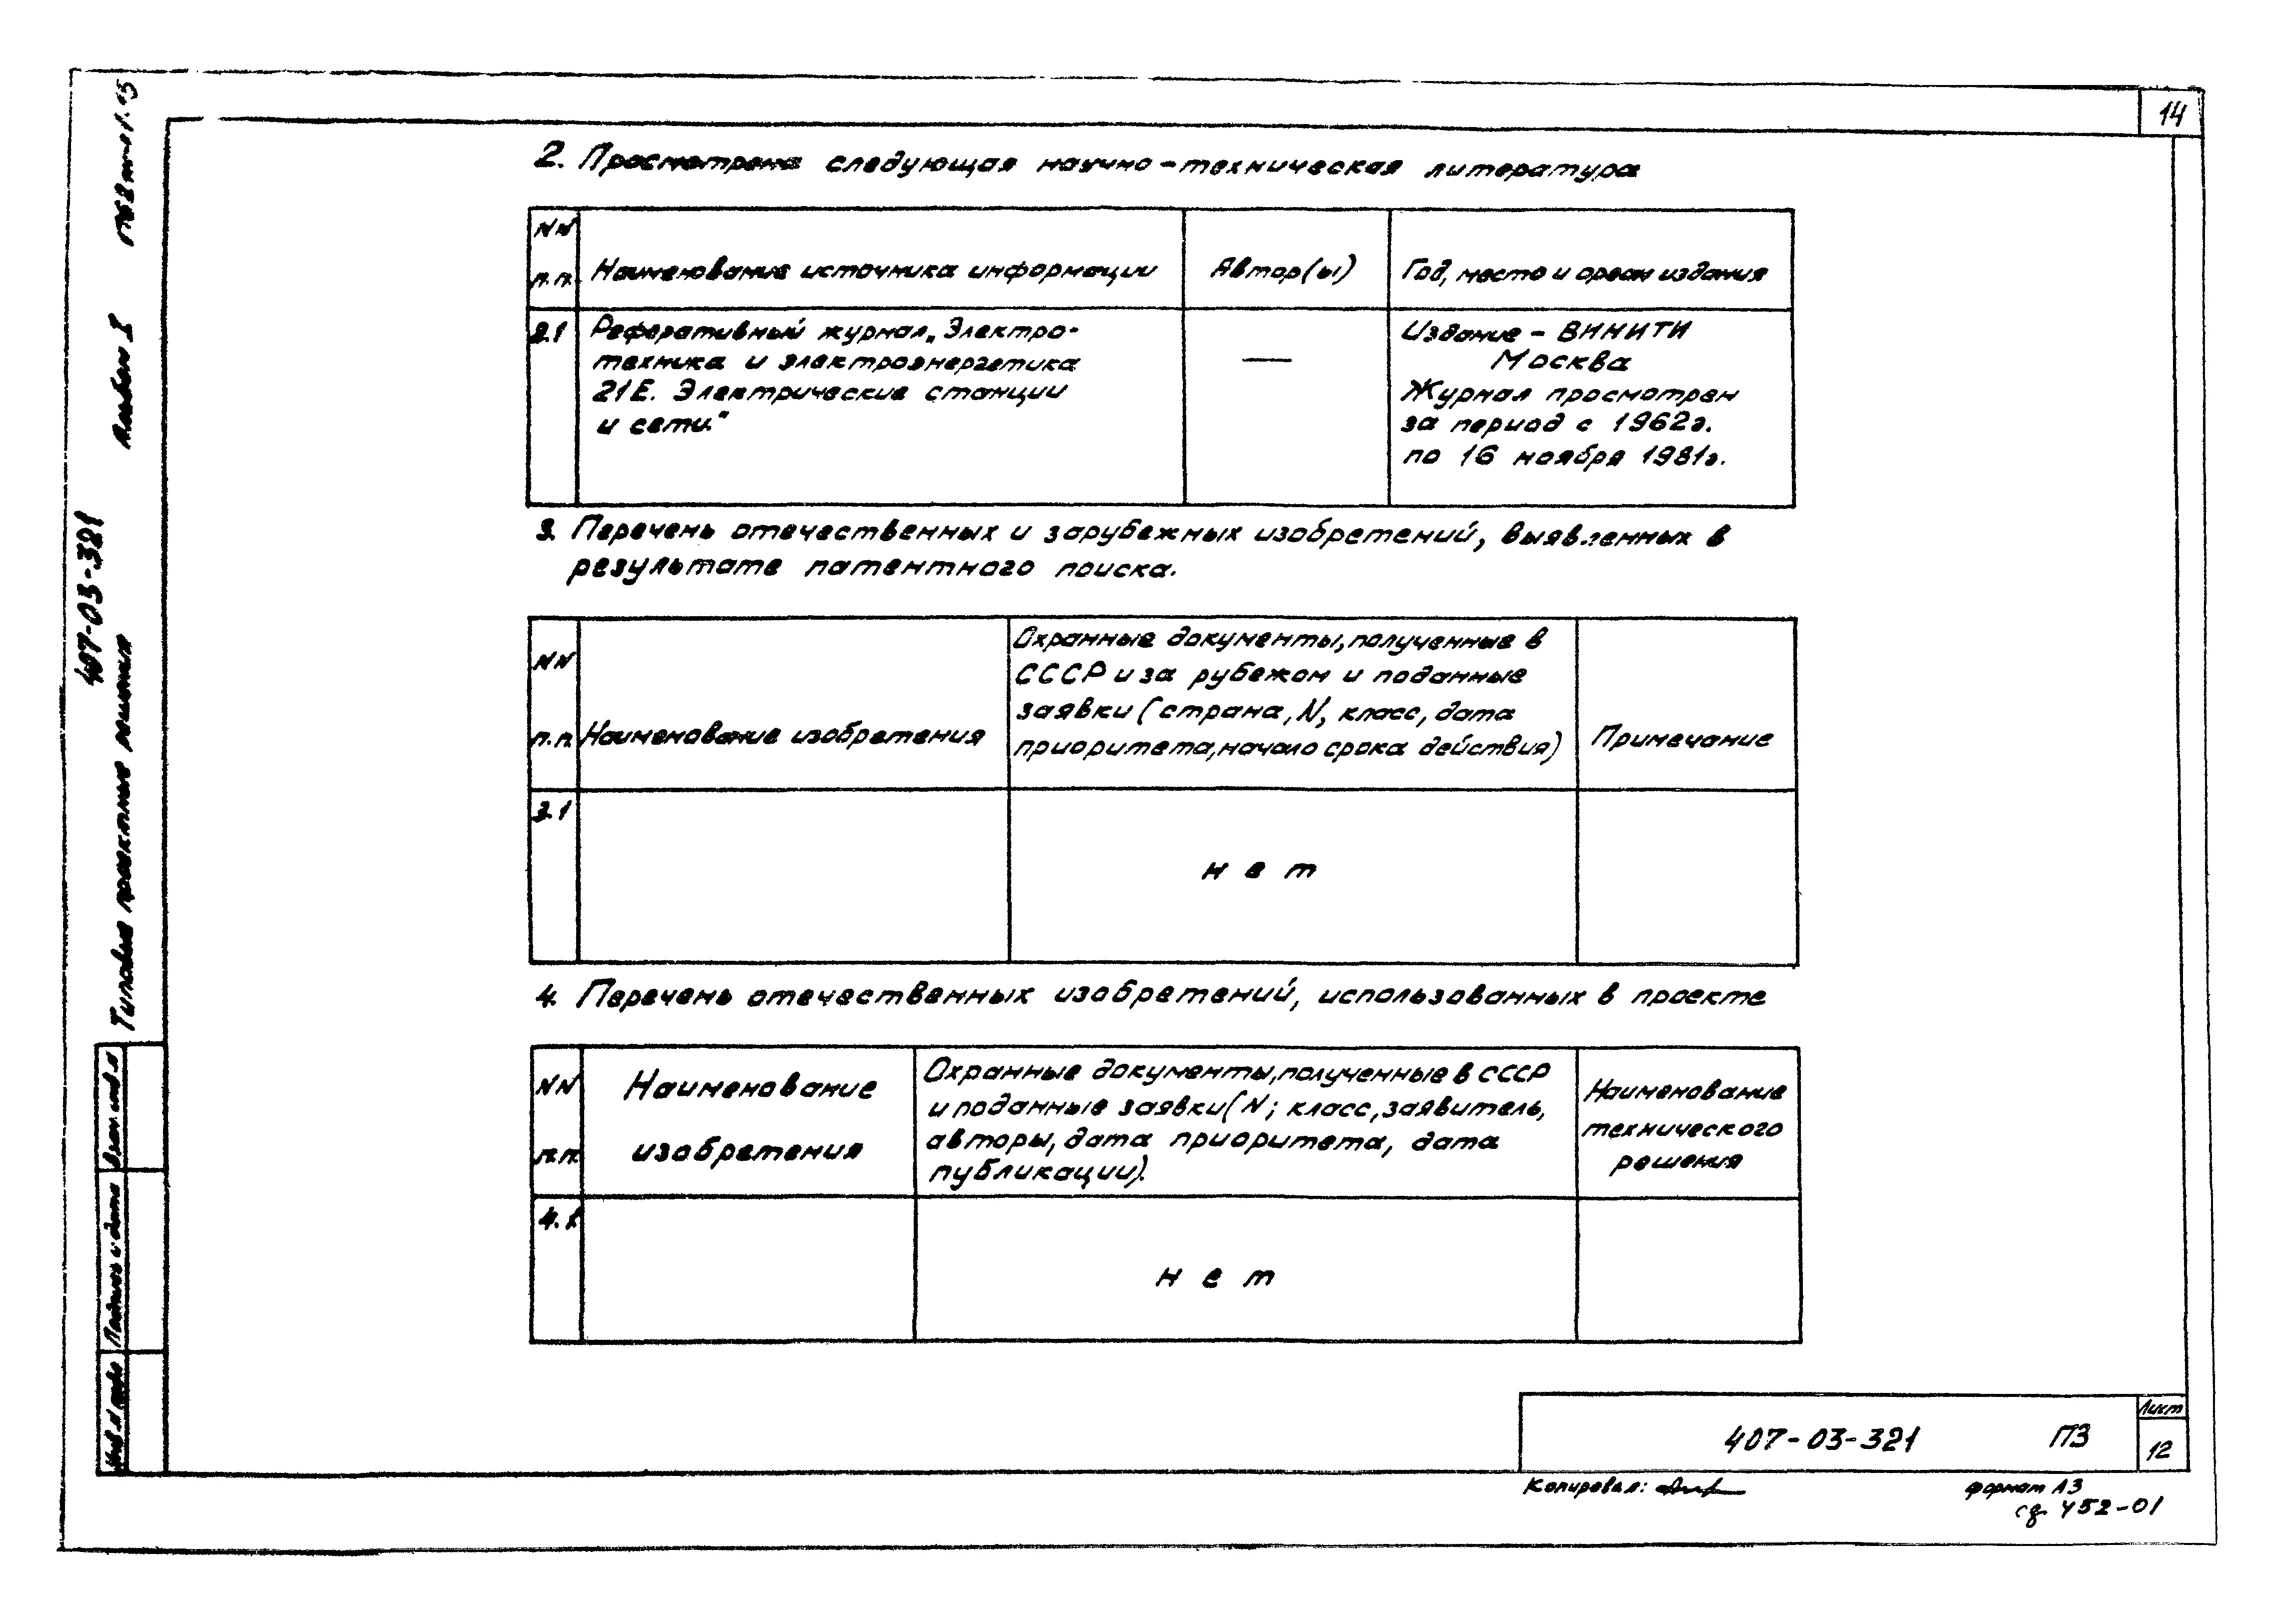 14
2. Просмотрена следующая научно-техническая литература
NN п.п.
Наименование источника информации
Автор(ы)
Год, место и орган издания
2.1
Реферативный журнал „Электро-
техника и электроэнергетика
21Е. Электрические станции
и сети."
—
Издание - ВИНИТИ
Москва
Журнал просмотрен
за период с 1962г.
по 16 ноября 1981г.
3. Перечень отечественных и зарубежных изобретений, выявленных в
результате патентного поиска.
NN п.п.
Наименование изобретения
Охранные документы, полученные в
СССР и за рубежом и поданные
заявки (страна, N, класс, дата
приоритета, начало срока действия)
Примечание
3.1
нет
4. Перечень отечественных изобретений, использованных в проекте
NN п.п.
Наименование
изобретения
Охранные документы, полученные в СССР
и поданные заявки (N; класс, заявитель,
авторы, дата приоритета, дата
публикации).
Наименование
технического
решения
4.1
нет
407-03-321 ПЗ
Лист
12
Копировал:
формат А3
452-01
407-03-321
Типовые проектные решения
Альбом I
Взам. инв. N
Подпись и дата
Инв. N подл